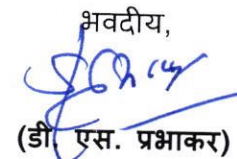 भवदीय,
(डी. एस. प्रभाकर)